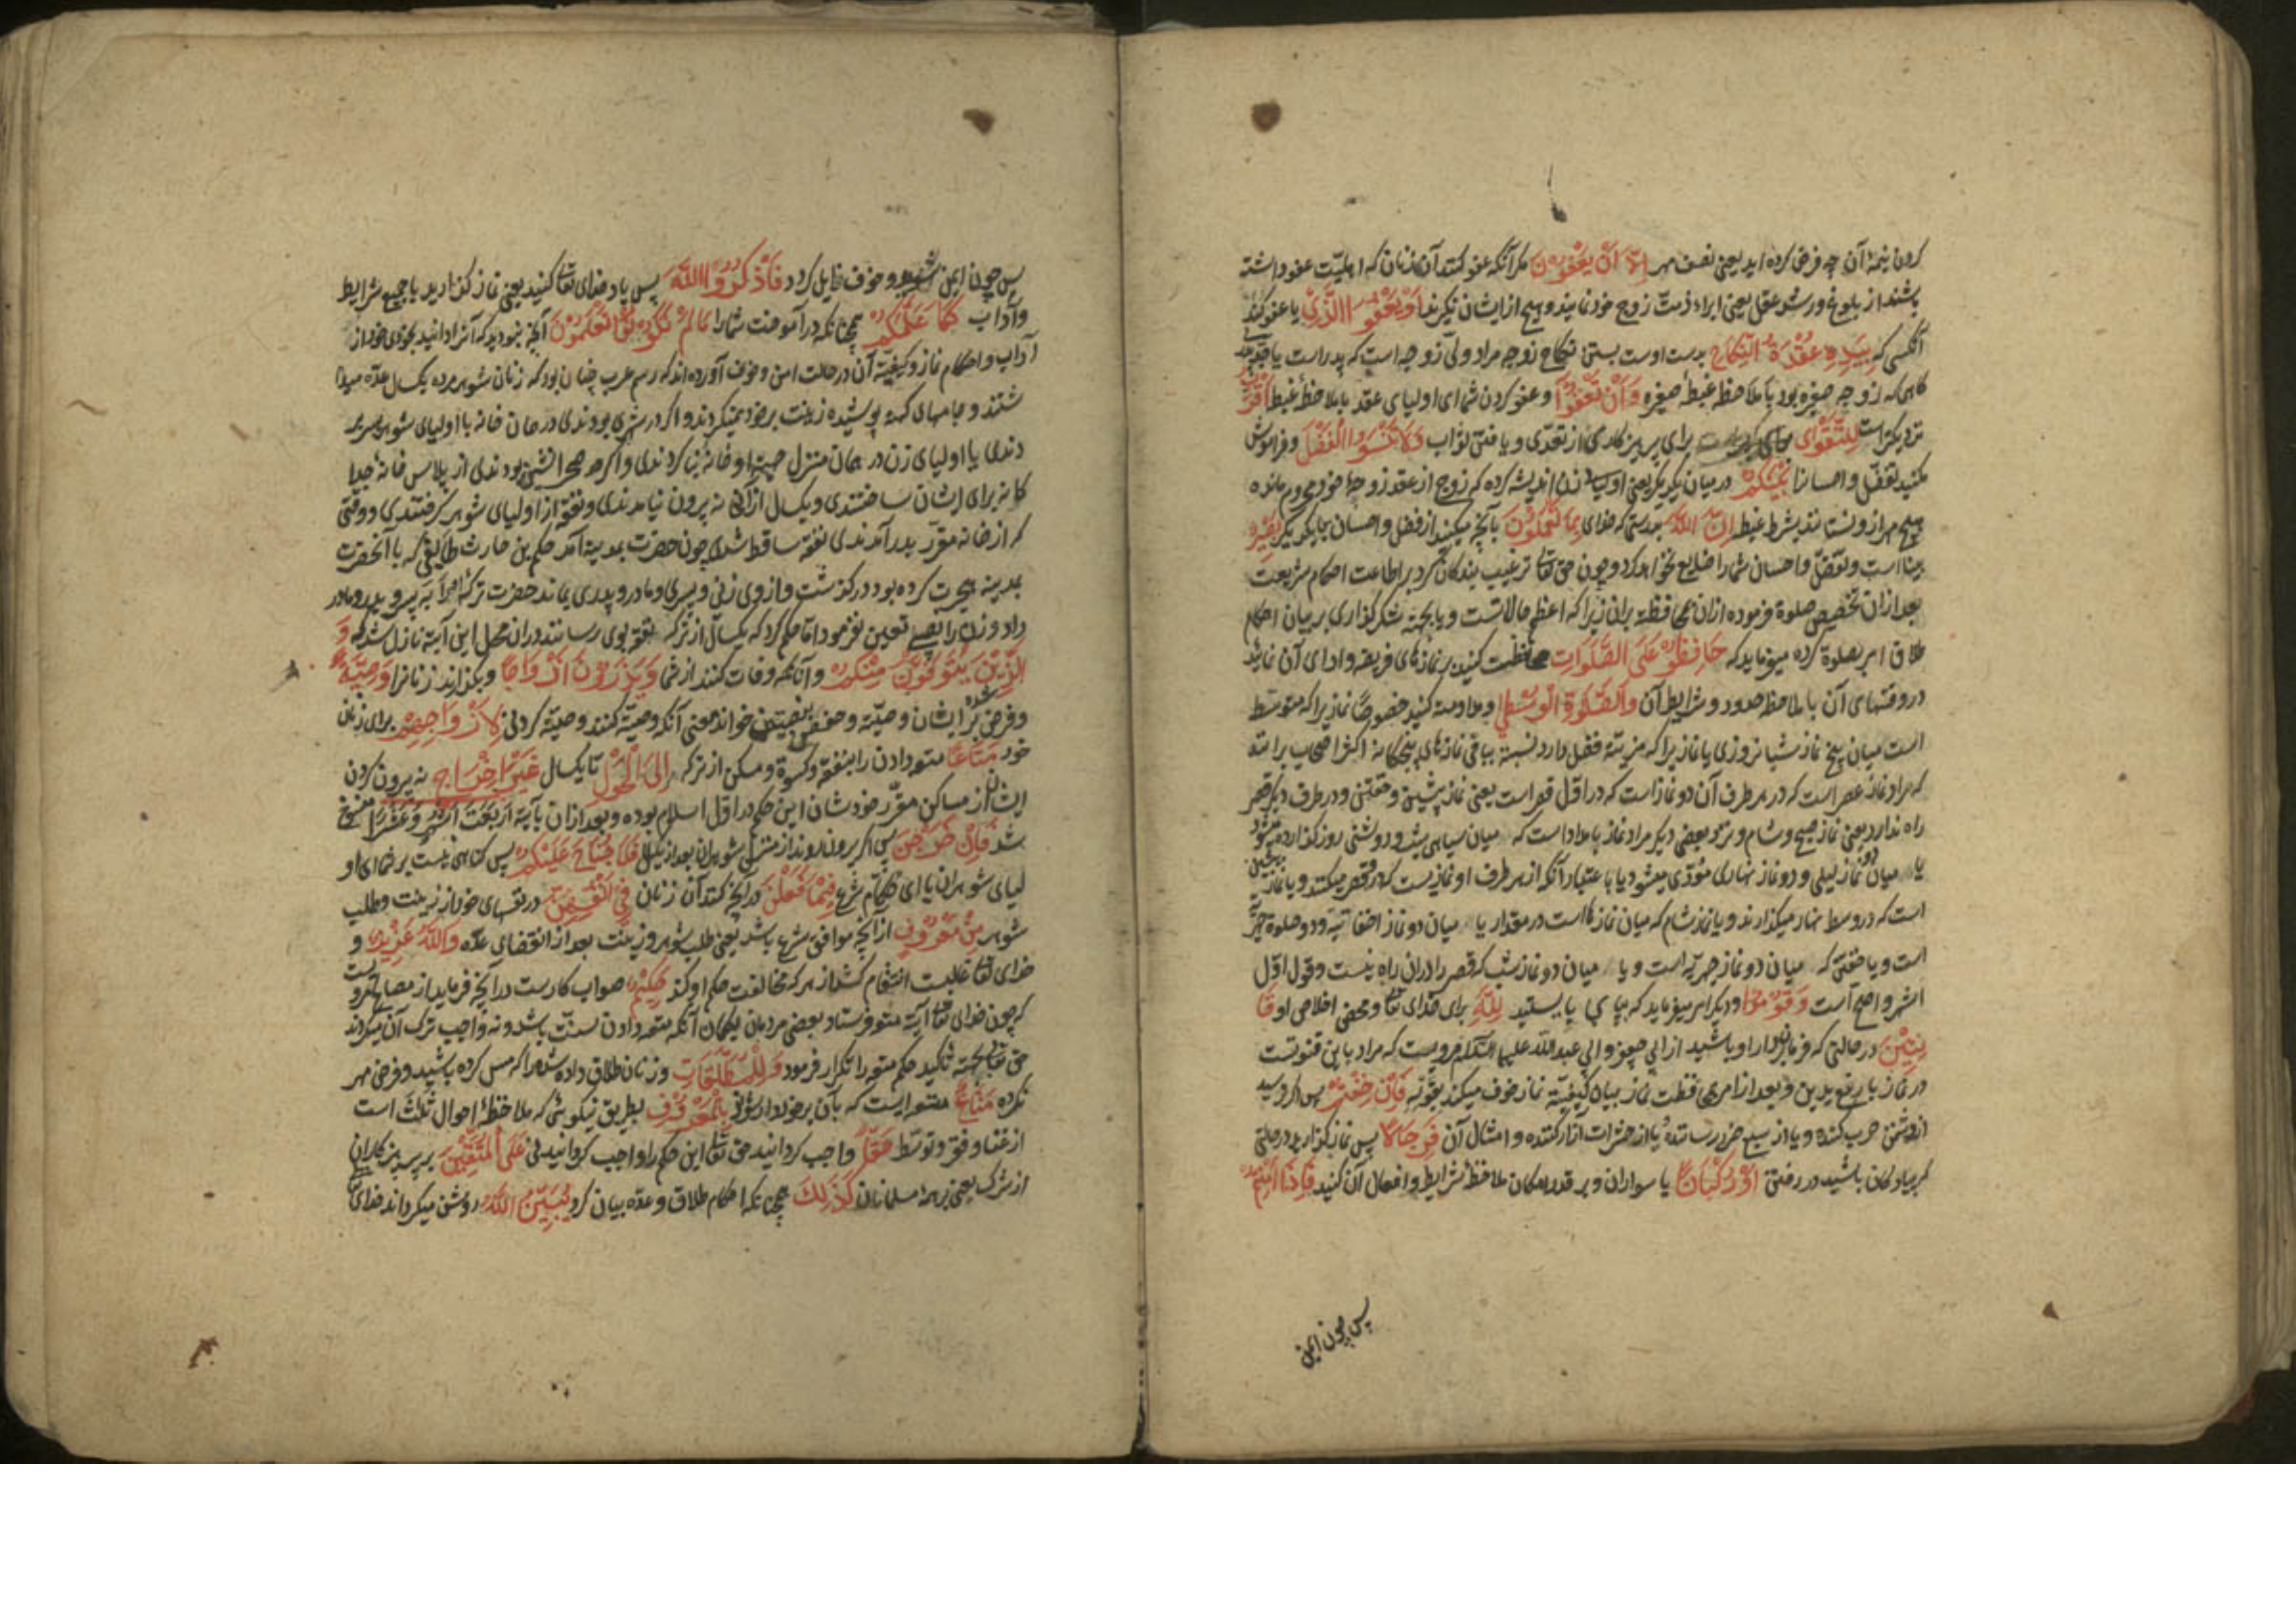 کردن نیمهٔ آن چه فرض کرده اید یعنی نصف مهر اِلَّا اَنْ يَعْفُوْنَ مکر آنکه عفو کنند آن زنان که اهلیّت عفو داشته
باشند از بلوغ و رشد و عقل یعنی ابراء ذمت زوج خود نمایند و هیچ از ایشان نکیرند اَوْ يَعْفُوَ الَّذِيْ یا عفو کند
آنکسی که بِيَدِهٖ عُقْدَةُ النِّكَاحِ بدست اوست بستن نکاح زوجه مراد ولیّ زوجه است که پدر است یا جدّ پدری
کاهی که زوجه صغیره بود با ملاحظ غبطهٔ صغیره وَاَنْ تَعْفُوْا و عفو کردن شما ای اولیای عقد با ملاحظهٔ غبطه اَقْرَبُ
نزدیکتر است لِلتَّقْوٰى برای پرهیزکاری از تعدّی و یافتن ثواب وَلَا تَنْسَوُا الْفَضْلَ و فراموش
مکنید تفضّل و احسانرا بَيْنَكُمْ در میان یکدیکر یعنی اولیاء زن اندیشه کرده که زوج از عقد زوجهٔ خود محروم مانده
هیچ مهر ازو نستانند بشرط غبطه اِنَّ اللّٰهَ بدرستی که خدای بِمَا تَعْمَلُوْنَ بآنچه میکنید از فضل و احسان بایکدیکر بَصِيْرٌ
بینا است و تفضّل و احسان شما را ضایع نخواهد کرد و چون حق تعا ترغیب بندکان کرد بر اطاعت احکام شریعت
بعد از آن تخصیص صلوة فرموده از آن محافظه بر آن زیرا که اعظم حالاتست و یا بجهة شکر کذاری بر بیان احکام
طلاق امر بصلوة کرده میفرماید که حَافِظُوْا عَلَى الصَّلَوَاتِ محافظت کنید بر نمازهای فریضه و ادای آن نمائید
در وقتهای آن با ملاحظه حدود و شرایط آن وَالصَّلٰوةِ الْوُسْطٰى و مداومت کنید خصوصًا نماز یرا که متوسط
است میان پنج نماز شبانروزی یا نماز یرا که مزیّته فضل دارد نسبة بباقی نمازهای پنجکانه اکثر اصحاب برانند
که مراد نماز عصر است که در هر طرف آن دو نماز است که در اوّل قصر است یعنی نماز پیشین و خفتنی و در طرف دیکر قصر
راه ندارد یعنی نماز صبح و شام و نزد بعضی دیکر مراد نماز بامداد است که میان سیاهی شب و روشنی روز کذارده میشود
یا میان دو نماز لیلی و دو نماز نهاری مؤدّی میشود یا باعتبار آنکه از هر طرف او نمازیست که در قصر میکنند و یا نماز پیشین
است که در وسط نهار میکذارند و یا نماز شام که میان نمازها است در مقدار یا میان دو نماز اخفاتیّه و دو صلوة جهریّه
است و یا خفتن که میان دو نماز جهریّه است و یا میان دو نماز شب که قصر را در آن راه نیست و قول اوّل
اشهر و اصح آست وَقُوْمُوْا و دیکر امر میفرماید که بپای بایستید لِلّٰهِ برای خدای تعا و محض اخلاص او قَا
نِتِيْنَ در حالتی که فرمانبردار او باشید از ابی جعفر و ابی عبد اللّه علیهما السّلام مرویست که مراد باین قنوتست
در نماز با رفع یدین و بعد از امر محافظت نماز بیان کیفیّة نماز خوف میکند بقوله فَاِنْ خِفْتُمْ پس اکر ترسید
از دشمن حرب کننده و یا از سبع ضرر رسانندهٔ یا از حشرات آزار کننده و امثال آن فَرِجَالًا پس نماز کذارید در حالتی
که پیادکان باشید در رفتن اَوْ رُكْبَانًا یا سواران و بر قدر امکان ملاحظهٔ شرایط و افعال آن کنید فَاِذَا اَمِنْتُمْ
پس چون ایمن
پس چون ایمن شوید و خوف زایل کردد فَاذْكُرُوا اللّٰهَ پس یاد خدای تعا کنید یعنی نماز کذارید با جمیع شرایط
و آداب كَمَا عَلَّمَكُمْ همچنانکه در آموخت شما را مَا لَمْ تَكُوْنُوْا تَعْلَمُوْنَ آنچه نبودید که آنرا دانید بخودی خود از
آداب و احکام نماز و کیفیّة آن در حالت امن و خوف آورده اند که رسم عرب چنان بود که زنان شوهر مرده یکسال عدّه میدا
شتند و جامهای کهنه پوشیده زینت بر خود نمیکردند و اکر در شهری بودندی در همان خانه با اولیای شوهر بسر بر
دندی یا اولیای زن در همان منزل جهتة او خانه بنا کردندی و اکر صحرا نشین بودندی از پلاس خانهٔ جدا
کانه برای ایشان ساختندی و یکسال از آن خانه بیرون نیامدندی و نفقه از اولیای شوهر کرفتندی و وقتی
که از خانه مقرّر بدر آمدندی نفقه ساقط شدی چون حضرت بمدینه آمد حکم بن حارث طایفی که با آنحضرت
بمدینه هجرت کرده بود در کذشت و از وی زنی و پسری و مادر و پدری بماند حضرت ترکهٔ او را به پسر و پدر و مادر
داد و زنرا نصیبی تعیین نفرمود امّا حکم کرد که یکسال از ترکه نفقه بوی رسانند در آن محل این آیة نازل شد که وَ
الَّذِيْنَ يُتَوَفَّوْنَ مِنْكُمْ و آنانکه وفات کنند از شما وَيَذَرُوْنَ اَزْوَاجًا و بکذارند زنانرا وَصِيَّةً
و فرض شده بر ایشان وصیّة و حفص بنصب خواند یعنی آنکه وصیّة کنند وصیّة کردنی لِاَزْوَاجِهِمْ برای زنان
خود مَتَاعًا متعه دادن را بنفقه و کسوة و مسکن از ترکه اِلَى الْحَوْلِ تا یکسال غَيْرَ اِخْرَاجٍ نه بیرون کردن
ایشان از مساکن مقرّر خودشان این حکم در اوّل اسلام بوده و بعد از آن بآیة اَرْبَعَةَ اَشْهُرٍ وَعَشْرًا منسوخ
شد فَاِنْ خَرَجْنَ پس اکر بیرون روند از منزل شوهران بعد از یکسال فَلَا جُنَاحَ عَلَيْكُمْ پس کناهی نیست بر شما ای او
لیای شوهران یا ای حکّام شرع فِيْمَا فَعَلْنَ در آنچه کنند آن زنان فِيْ اَنْفُسِهِنَّ در نفسهای خود از زینت و طلب
شوهر مِنْ مَعْرُوْفٍ از آنچه موافق شرع باشد یعنی طلب شوهر و زینت بعد از انقضای عدّه وَاللّٰهُ عَزِيْزٌ و
خدای تعا غالبست انتقام کشد از هر که مخالفت حکم او کند حَكِيْمٌ صواب کارست در آنچه فرماید از مصالح مرویست
که چون خدای تعا آیة متعه فرستاد بعضی مردمان بکمان آنکه متعه دادن سنّت باشد و نه واجب ترک آن میکردند
حق تعا بجهته تاکید حکم متعه را تکرار فرمود وَلِلْمُطَلَّقَاتِ و زنان طلاق داده شده را که مس کرده باشید و فرض مهر
نکرده مَتَاعٌ متعه ایست که بآن برخوردار شوند بِالْمَعْرُوْفِ بطریق نیکویی که ملاحظهٔ احوال ثلٰثه است
از غنا و فقر و توسّط حَقًّا واجب کردانید حق تعا این حکم را واجب کردانیدنی عَلَى الْمُتَّقِيْنَ بر پرهیزکاران
از شرک یعنی بر همهٔ مسلمانان كَذٰلِكَ همچنانکه احکام طلاق و عدّه بیان کرد يُبَيِّنُ اللّٰهُ روشن میکرداند خدای تعا